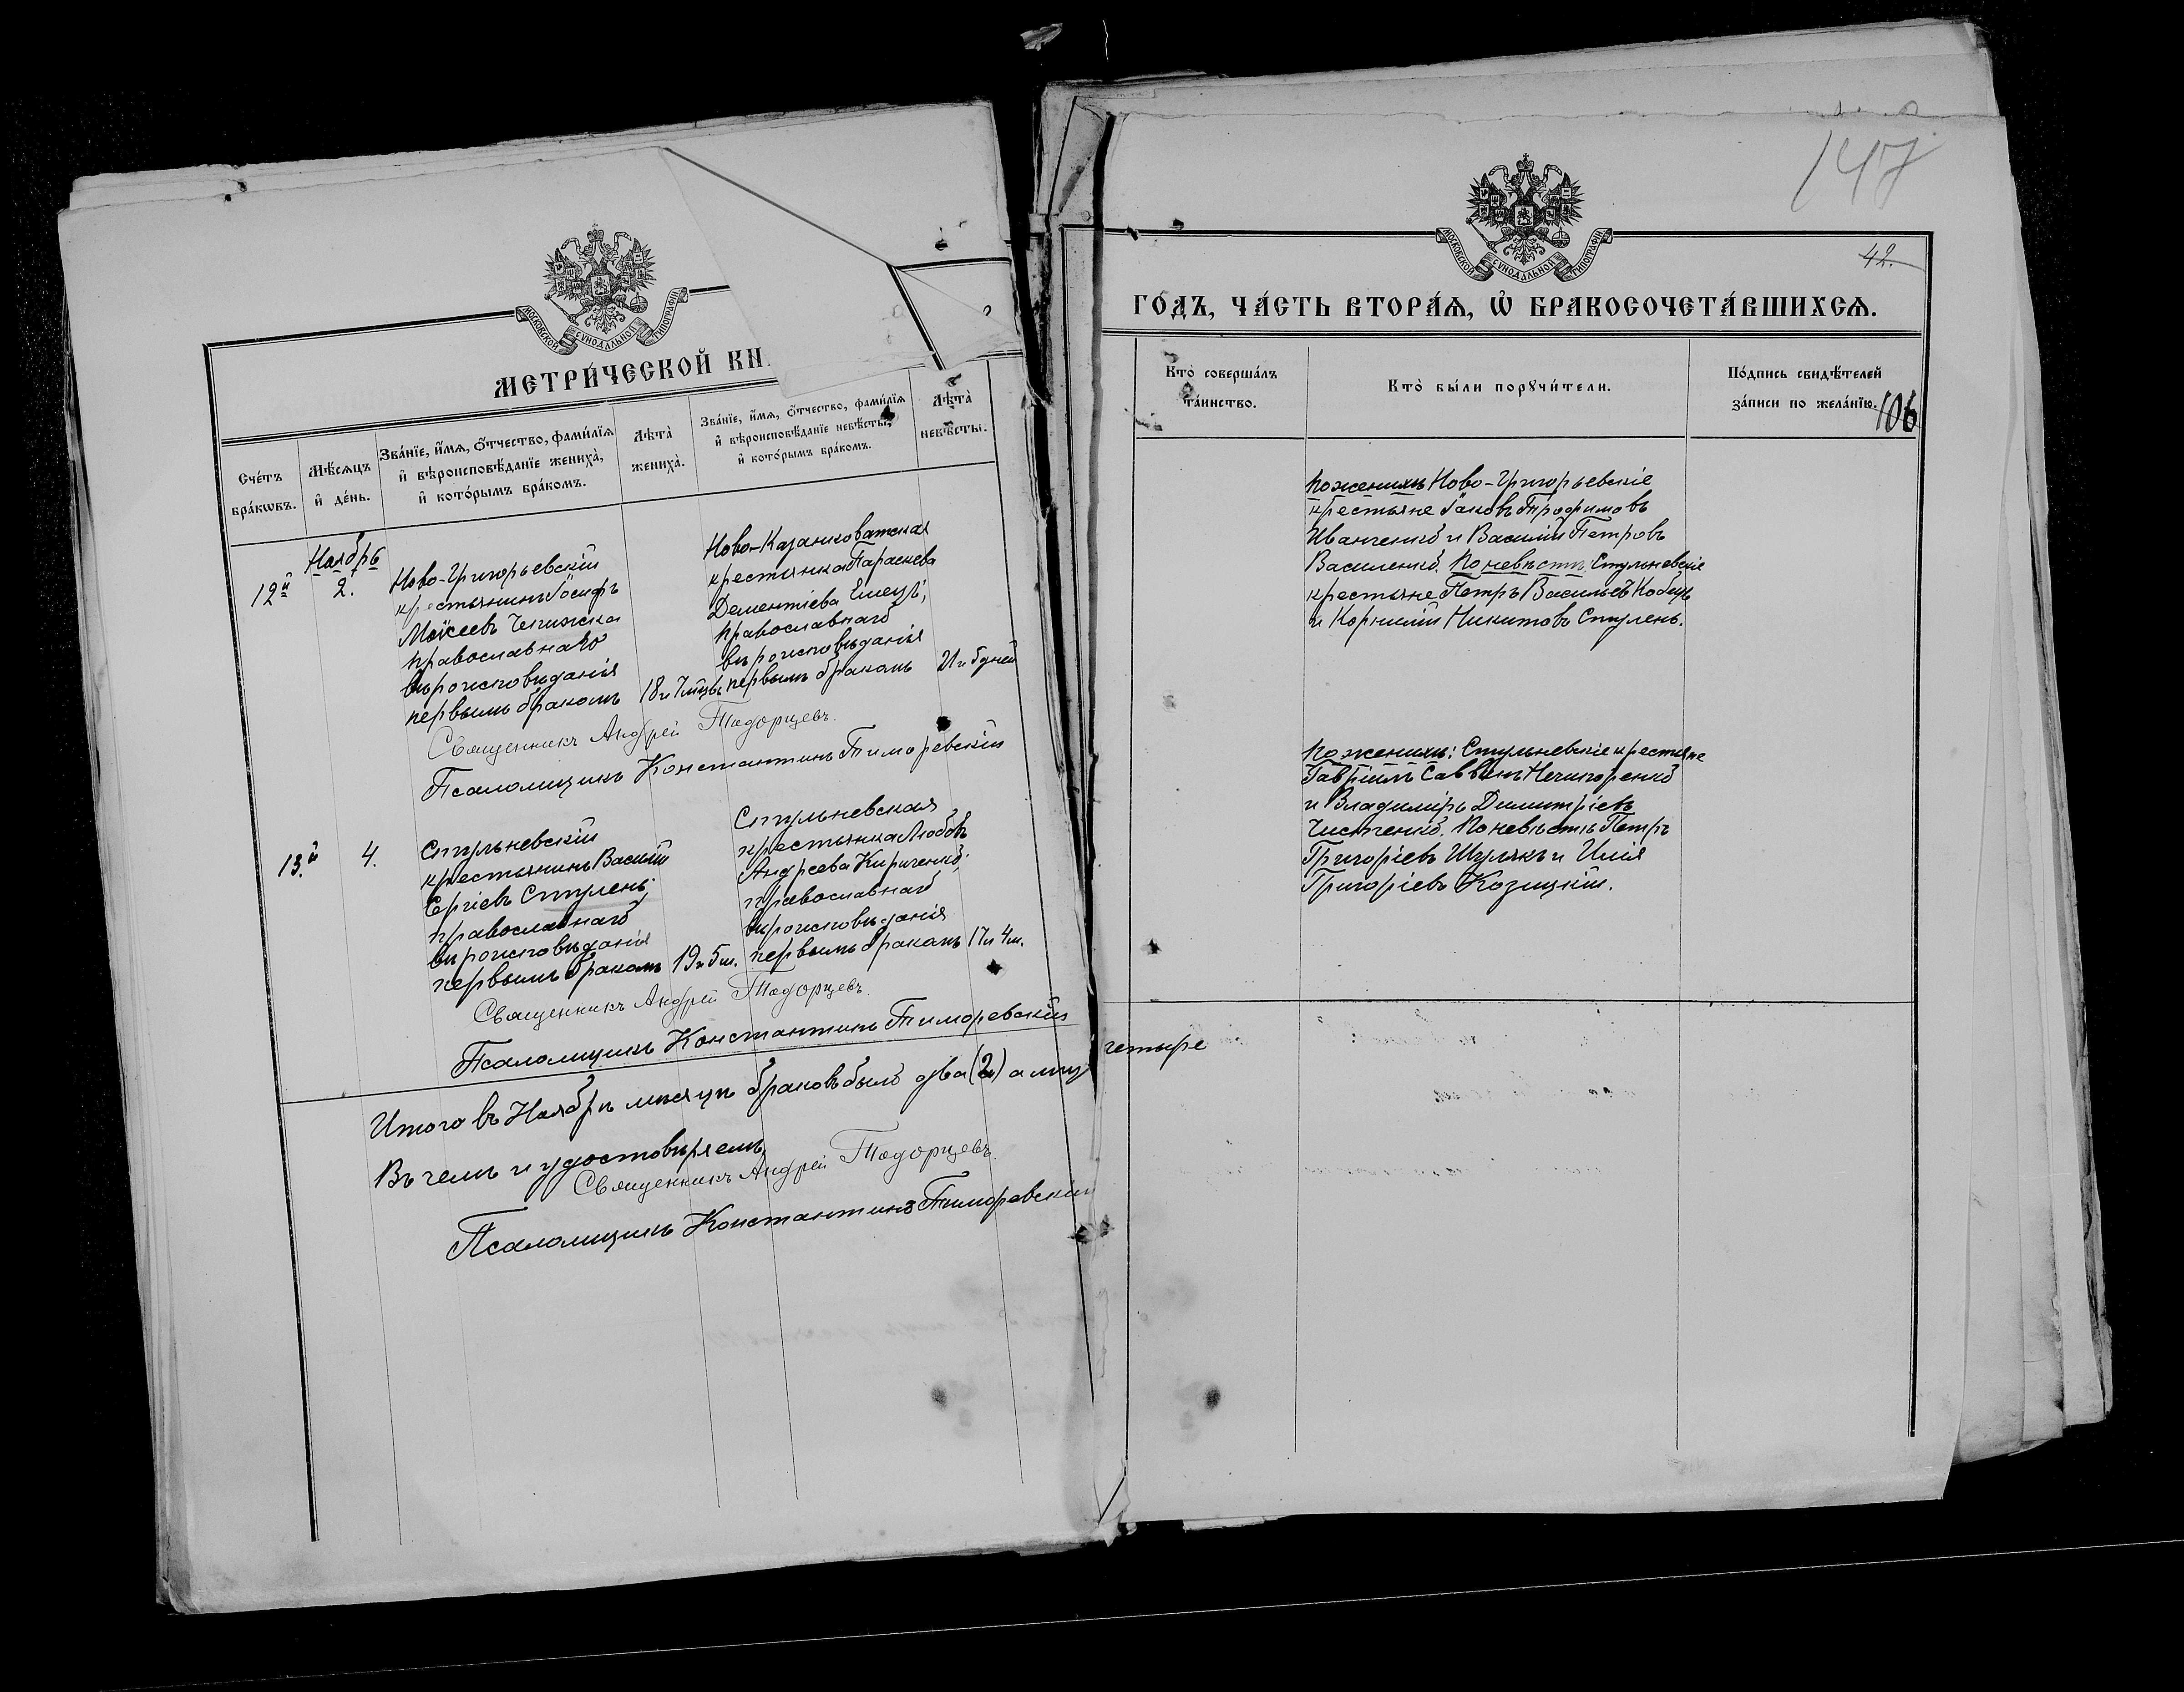 147
МОСКОВСКОЙ СѴНОДАЛЬНОЙ ТИПОГРАФІИ
МЕТРИ́ЧЕСКОЙ КН
Сче́тъ бра́кѡвъ.
Мѣ́сяцъ и҆ де́нь.
Зва́нїе, и҆́мя, ѻ҆́тчество, фами́лїя
и҆ вѣроисповѣ́данїе жениха̀,
и҆ кото́рымъ бра́комъ.
Лѣ́та̀ жениха̀.
Зва́нїе, и҆́мя, ѻ҆́тчество, фами́лїя
и҆ вѣроисповѣ́данїе невѣ́сты,
и҆ кото́рымъ бра́комъ.
Лѣ́та̀ невѣ́сты.
Ноябрь
12й
2.
Ново-Григорьевскій
крестьянинъ Іосифъ
Моѵсеевъ
православнаго
вѣроисповѣданія
первымъ бракомъ
18 и 7 мцвъ
Ново-Казанковатская
крестьянка Параскева
Дементіева Емецъ,
православнаго
вѣроисповѣданія
первымъ бракомъ
21 и 5 дней
Священникъ Андрей Тодорцевъ.
Псаломщикъ Константинъ Тиморевскій
13.й
4.
Стульневскій
крестьянинъ Василій
Сергіевъ Стулень,
православнаго
вѣроисповѣданія
первымъ бракомъ
19 и 5 м.
Стульневская
крестьянка Любовь
Андреева Кириченко,
православнаго
вѣроисповѣданія
первымъ бракомъ
17 и 4 м.
Священникъ Андрей Тодорцевъ.
Псаломщикъ Константинъ Тиморевскій
Итого въ Ноябрѣ мѣсяцѣ браковъ было два (2) а лицъ четыре
Въ чемъ и удостовѣряемъ,
Священникъ Андрей Тодорцевъ.
Псаломщикъ Константинъ Тиморевскій
МОСКОВСКОЙ СѴНОДАЛЬНОЙ ТИПОГРАФІИ
42.
ГО́ДЪ, ЧА́СТЬ ВТОРА́Я, Ѡ҆ БРАКОСОЧЕТА́ВШИХСЯ.
Кто̀ соверша́лъ
та́инство.
Кто̀ бы́ли порꙋчи́тели.
По́дпись свидѣ́телей
за́писи по жела́нїю.
106
По женихѣ Ново-Григорьевскіе
крестьяне Іаковъ Трофимовъ
Иванченко и Василій Петровъ
Василенко. По невѣстѣ: Стульневскіе
крестьяне Петръ Васильевъ Кобецъ
и Корнилій Никитовъ Стулень.
По женихѣ: Стульневскіе крестьяне
Гавріилъ Саввинъ Нечипоренко
и Владиміръ Димитріевъ
Чистенко. По невѣстѣ Петръ
Григоріевъ Шулякъ и Илія
Григоріевъ Козицкій.